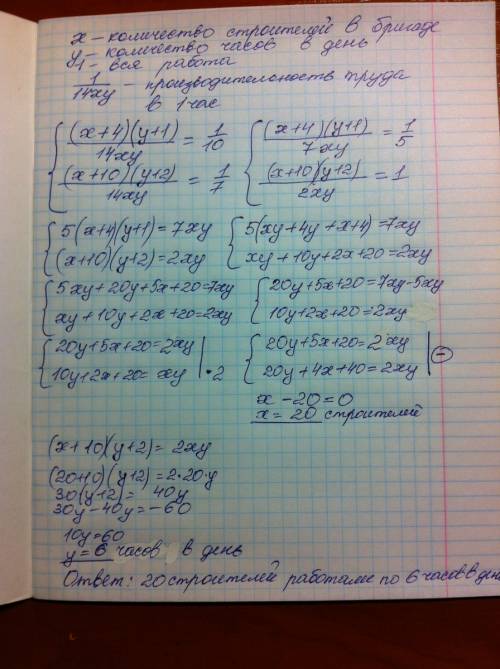 x – количество строителей в бригаде
y – количество часов в день
1 – вся работа
1/14xy – производительность труда
в 1 час
{ (x+4)(y+1)/14xy = 1/10 { (x+4)(y+1)/7xy = 1/5
(x+10)(y+2)/14xy = 1/7 (x+10)(y+2)/2xy = 1
{ 5(x+4)(y+1)=7xy { 5(xy+4y+x+4)=7xy
(x+10)(y+2)=2xy xy+10y+2x+20=2xy
{ 5xy+20y+5x+20=7xy { 20y+5x+20=7xy-5xy
xy+10y+2x+20=2xy 10y+2x+20=2xy
{ 20y+5x+20=2xy | { 20y+5x+20=2xy |
10y+2x+20= xy | •2 20y+4x+40=2xy | –
x – 20 = 0
x = 20 строителей
(x+10)(y+2)= 2xy
(20+10)(y+2)=2•20•y
30(y+2)= 40y
30y-40y=-60
10y=60
y=6 часов в день
Ответ: 20 строителей работали по 6 часов в ден